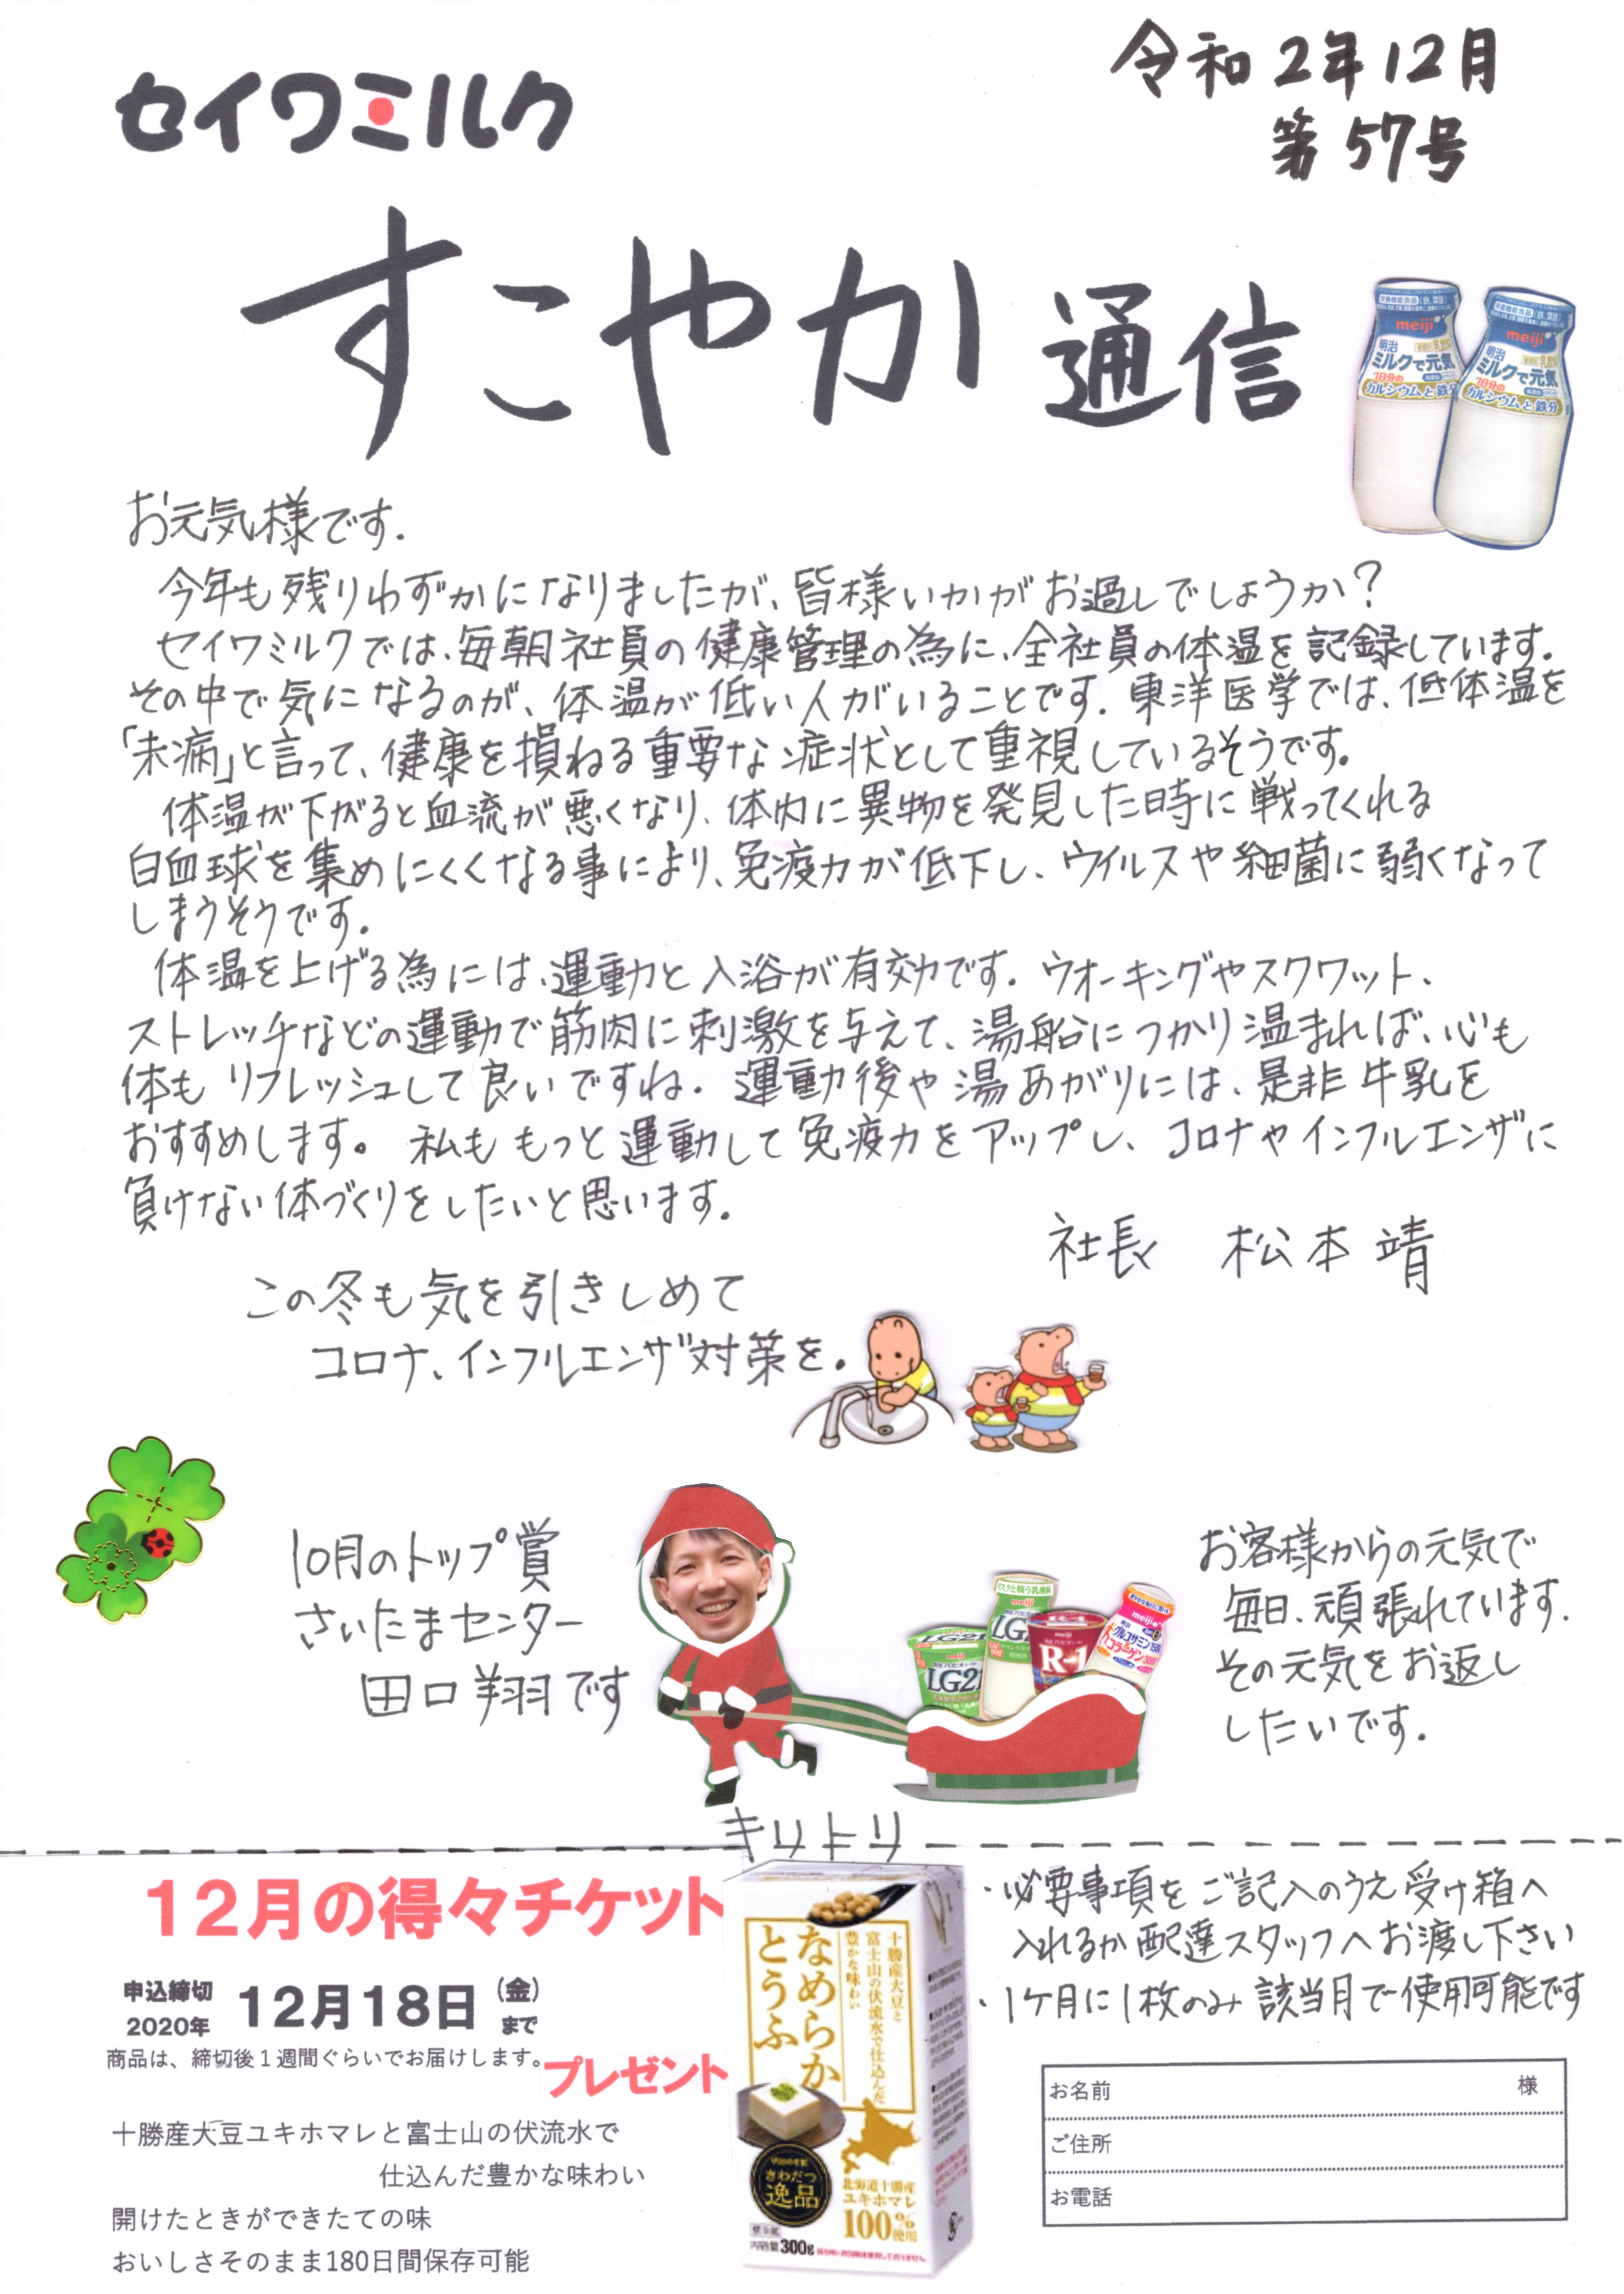 セイワミルク
令和2年12月
第57号
すこやか通信
meiji
明治
ミルクで元気
1日分の
カルシウムと鉄分
meiji
明治
ミルクで元気
1日分の
カルシウムと鉄分
お元気様です.
今年も残りわずかになりましたが、皆様いかがお過しでしょうか？
セイワミルクでは、毎朝社員の健康管理の為に、全社員の体温を記録しています.
その中で気になるのが、体温が低い人がいることです. 東洋医学では、低体温を
「未病」と言って、健康を損ねる重要な症状として重視しているそうです。
体温が下がると血流が悪くなり、体内に異物を発見した時に戦ってくれる
白血球を集めにくくなる事により、免疫力が低下し、ウイルスや細菌に弱くなって
しまうそうです。
体温を上げる為には、運動と入浴が有効です. ウオーキングやスクワット、
ストレッチなどの運動で筋肉に刺激を与えて、湯船につかり温まれば、心も
体もリフレッシュして良いですね. 運動後や湯あがりには、是非牛乳を
おすすめします。 私ももっと運動して免疫力をアップし、コロナやインフルエンザに
負けない体づくりをしたいと思います.
社長 松本靖
この冬も気を引きしめて
コロナ、インフルエンザ対策を.
10月のトップ賞
さいたまセンター
田口翔です
LG21
meiji
LG21
リスクと戦う乳酸菌
meiji
LG
meiji
R-1
meiji
グルコサミン
コラーゲン
お客様からの元気で
毎日、頑張れています.
その元気をお返し
したいです.
キリトリ
12月の得々チケット
申込締切
2020年
12月18日
(金)
まで
商品は、締切後１週間ぐらいでお届けします。
プレゼント
十勝産大豆ユキホマレと富士山の伏流水で
仕込んだ豊かな味わい
開けたときができたての味
おいしさそのまま180日間保存可能
十勝産大豆と
富士山の伏流水で仕込んだ
豊かな味わい
なめらか
とうふ
きわだつ
逸品
北海道十勝産
ユキホマレ
100%
使用
内容量300g
・必要事項をご記入のうえ受け箱へ
入れるか配達スタッフへお渡し下さい
・1ケ月に1枚のみ該当月で使用可能です
お名前 様
ご住所
お電話